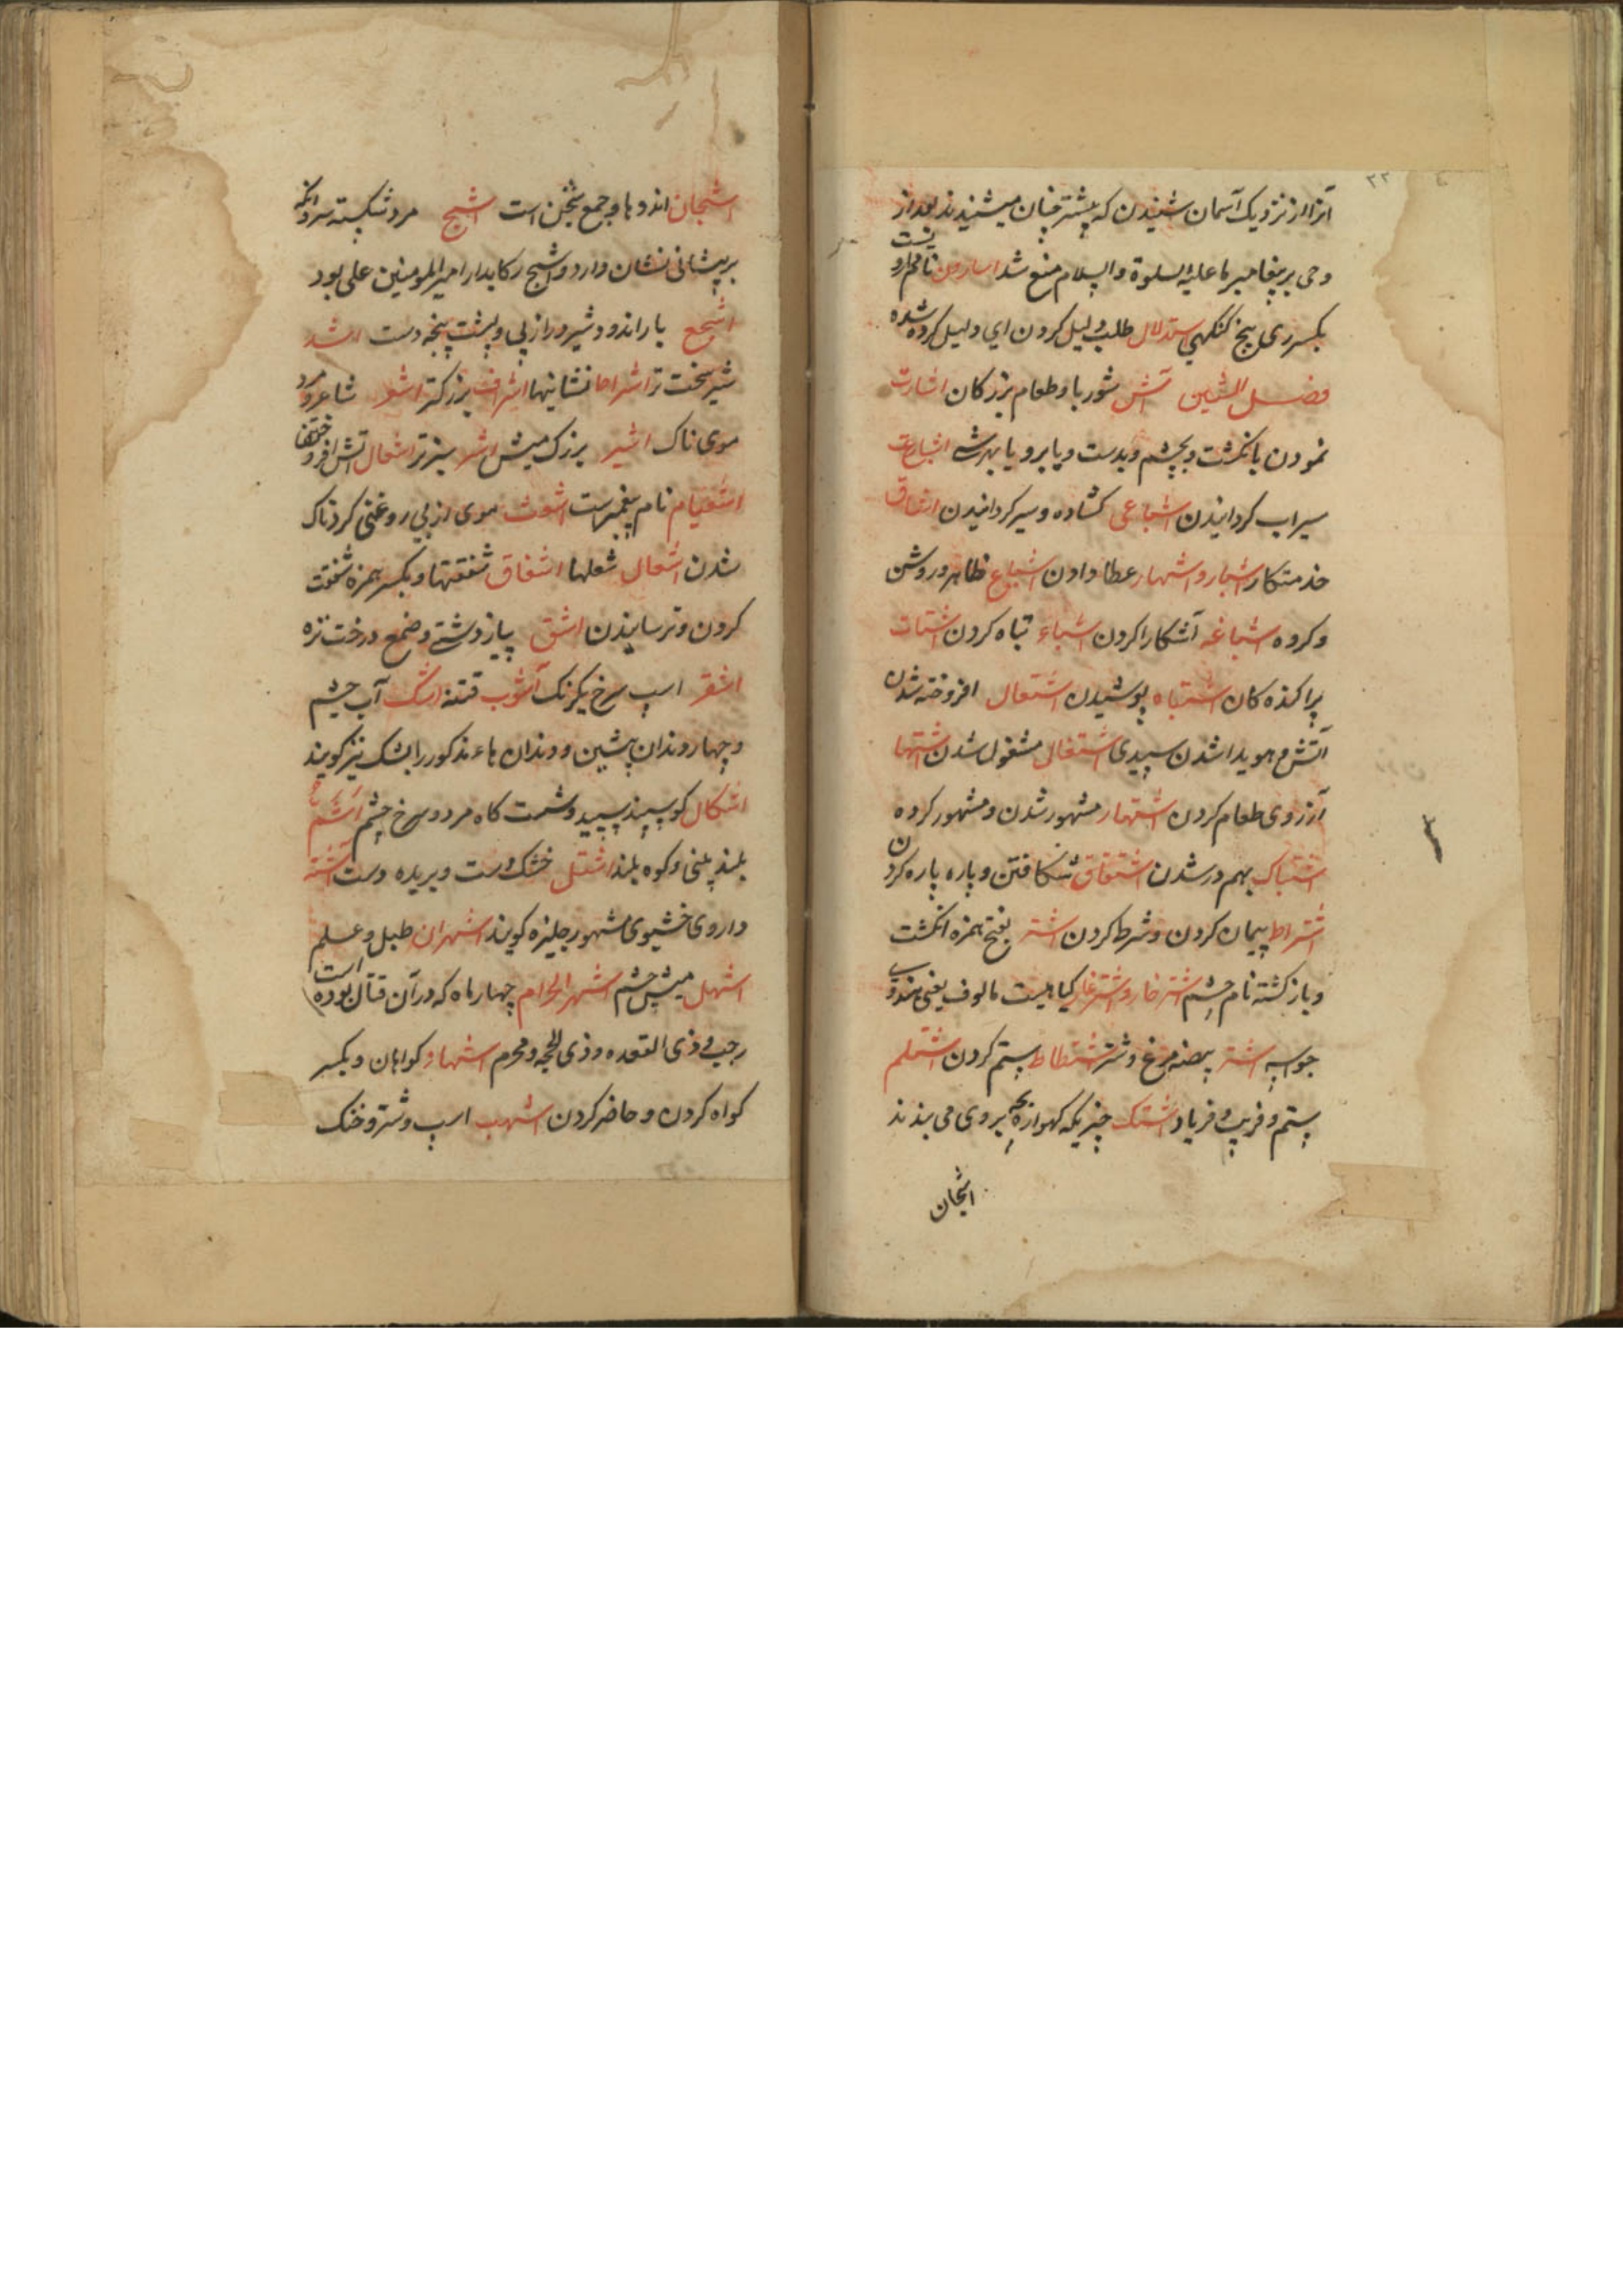 ۲۲
آنرا از نزدیک آسمان شنیدن که پیشتر چنان میشنیدند بعد از
وحی بر پیغامبر ما علیه السلوة والسلام منع شد اسارون نام دارو
بکسر ری بیخ کنکهی استدلال طلب دلیل کردن ای دلیل کرده شده
فصل الشین آش شوربا و طعام بزرکان اشارت
نمودن بانکشت و بچشم و بدست و یا برو یا بهرشه اشباعت
سیراب کردانیدن اشباعی کشاده و سیر کردانیدن
خدمتکار اشبار و اشهار عطا دادن اشباع ظاهر و روشن
و کروه اشباغه آشکارا کردن اشباء تباه کردن اشتات
پراکنده کان اشتباه پوشیدن اشتعال افروخته شدن
آتش و هویدا شدن سپیدی اشتغال مشغول شدن اشتها
آرزوی طعام کردن اشتهار مشهور شدن و مشهور کرده
اشتباک بهم در شدن اشتقاق شکافتن و پاره پاره کردن
اشتراط پیمان کردن و شرط کردن اشتر بفتح همزه انکشت
و بازکشته نام چشم اشتر خار و اشتر غاز کیاهیست مالوف یعنی هندوی
جواسه اشتر بیضه مرغ و شتر اشتطاط ستم کردن اشتلم
ستم و فریب و فریاد اشتک چیزیکه کهواره بچه بروی می بندند
اشجان
اشجان اندوها و جمع شجن است اشج مرد شکسته سر و انکه
بر پیشانی نشان دارد و اشج رکابدار امیرالمومنین علی بود
اشجع یاراندو و شیر دراز پی و پشت پنجه دست اشد
شیر سخت تر اشراط نشانیها اشراف بزرکتر اشعر شاعر و مرد
موی ناک اشیر بزرک میش اشر سبزتر اشعال آتش افروختها
اشعیام نام پیغمبرست اشعث موی از بی روغنی کردناک
شدن اشعال شعلها اشفاق شفقتها و بکسر همزه شفقت
کردن و ترسانیدن اشق پیاز دشتی و ضمغ درخت تره
اشقر اسپ سرخ یکرنک آشوب فتنه اشک آب چشم
و چهار دندان پیشین و دندان هاء مذکور را یشک نیز کویند
اشکال کوسپند سپید و شمت کاه مرد و سرخ چشم اشم
بلند بینی و کوه بلند اشقل خشک دست و بریده دست اشنه
داروی خشبوی مشهور چلیزه کویند اشهران طبل و علم
اشهل میش چشم اشهر الحرام چهار ماه که در آن قتال بوده است
رجب و ذی القعده و ذی الحجه و محرم اشهاد کواهان و بکسر
کواه کردن و حاضر کردن اشهب اسپ و شتر و خنک